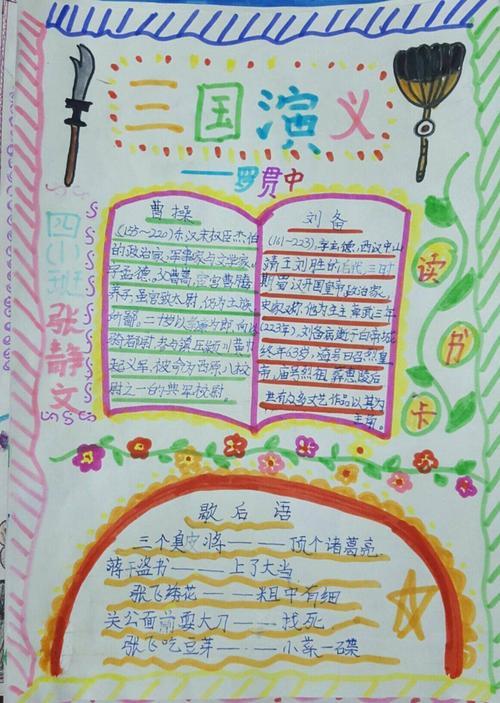 三国演义
——罗贯中
四(小)班
张静文
读书卡
曹操
(155—220)东汉末权臣杰伯
的政治家、军事家与文学家,
字孟德。父曹嵩,宦官曹腾
养子,虽官致太尉,仍为士族
所鄙。二十岁以孝廉为郎,
骑都尉,参与镇压颍川黄巾
起义军,被命为西原八校
尉之一的典军校尉。
刘备
(161—223),字玄德,西汉中山
靖王刘胜的后代,三国时
期蜀汉开国皇帝,政治家,
史家又称他为主。章武三年
(223年),刘备病逝于白帝城,
终年63岁,谥号昭烈皇
帝,庙号烈祖,葬惠陵。后
世有众多文艺作品以其为
主角。
歇后语
三个臭皮将——顶个诸葛亮
蒋干盗书——上了大当
张飞绣花——粗中有细
关公面前耍大刀——找死
张飞吃豆芽——小菜一碟